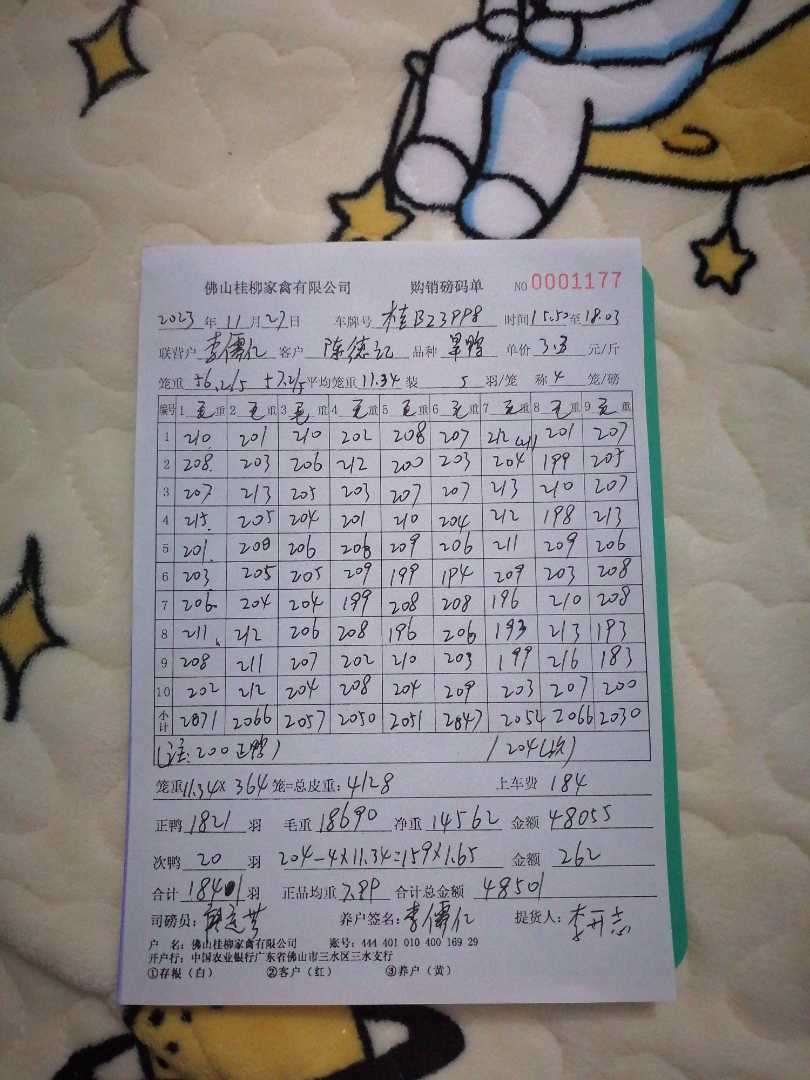 佛山桂柳家禽有限公司 购销磅码单 NO 0001177
2023 年 11 月 27 日 车牌号 桂B23998 时间 15.50 至 18.03
联营户 李儒仁 客户 陈德记 品种 单价 3.3 元/斤
笼重 平均笼重 11.34 装 5 羽/笼 称 4 笼/磅
编号 1 毛 重 2 毛 重 3 毛 重 4 毛 重 5 毛 重 6 毛 重 7 毛 重 8 毛 重 9 毛 重
1 210 201 210 202 208 207 212 201 207
2 208 203 206 212 200 203 204 199 205
3 207 213 205 203 207 207 213 210 207
4 215 205 204 201 210 204 212 198 213
5 201 208 206 206 209 206 211 209 206
6 203 205 205 209 199 194 209 203 208
7 206 204 204 199 208 208 196 210 208
8 211 212 206 208 196 206 193 213 193
9 208 211 207 202 210 203 199 216 183
10 202 212 204 208 204 209 203 207 200
小计 2071 2066 2057 2050 2051 2047 2054 2066 2030
(注: 200 正鸭) / 204(次)
笼重 11.34 × 364 笼=总皮重: 4128 上车费 184
正鸭 1821 羽 毛重 18690 净重 14562 金额 48055
次鸭 20 羽 204-4×11.34=159×1.65 金额 262
合计 1841 羽 正品均重 7.99 合计总金额 48501
司磅员: 养户签名: 李儒仁 提货人: 李开志
户 名: 佛山桂柳家禽有限公司 账号: 444 401 010 400 169 29
开户行: 中国农业银行广东省佛山市三水区三水支行
①存根（白） ②客户（红） ③养户（黄）